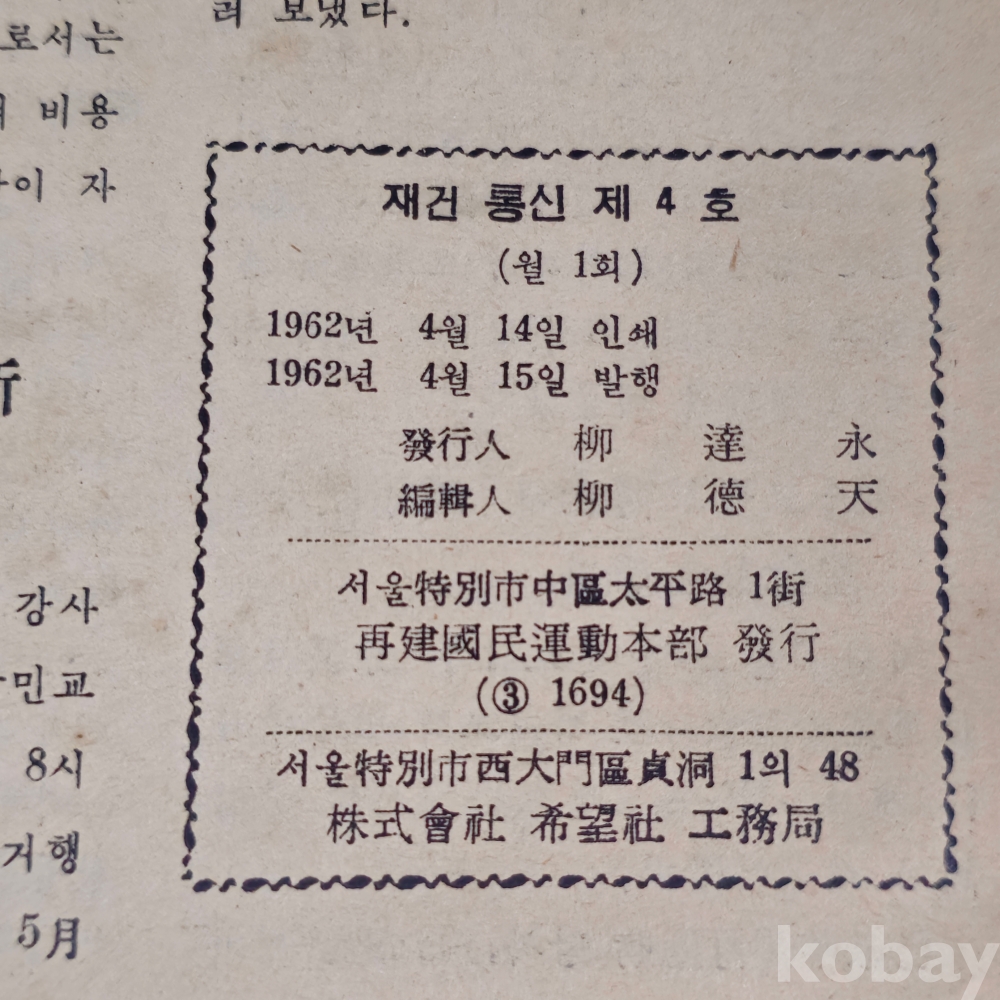 러 보냈다.
로서는
비용
이 자
강사
민교
8시
거행
5月
재건 통신 제 4 호
(월 1회)
1962년 4월 14일 인쇄
1962년 4월 15일 발행
發行人 柳達永
編輯人 柳德天
서울特別市中區太平路 1街
再建國民運動本部 發行
(③ 1694)
서울特別市西大門區貞洞 1의 48
株式會社 希望社 工務局
kobay